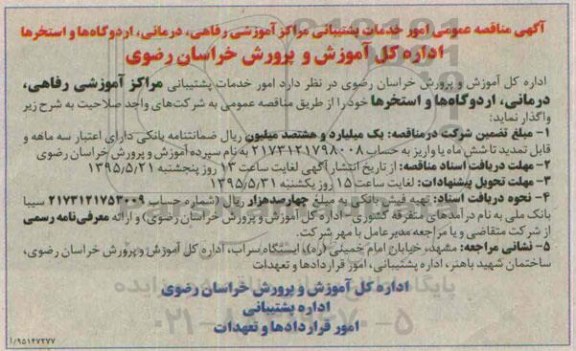 آگهی مناقصه عمومی امور خدمات پشتیبانی مراکز آموزشی رفاهی، درمانی، اردوگاه‌ها و استخرها
اداره کل آموزش و پرورش خراسان رضوی
اداره کل آموزش و پرورش خراسان رضوی در نظر دارد امور خدمات پشتیبانی مراکز آموزشی رفاهی،
درمانی، اردوگاه‌ها و استخرها خود را از طریق مناقصه عمومی به شرکت‌های واجد صلاحیت به شرح زیر
واگذار نماید:
۱- مبلغ تضمین شرکت در مناقصه: یک میلیارد و هشتصد میلیون ریال ضمانتنامه بانکی دارای اعتبار سه ماهه و
قابل تمدید تا شش ماه یا واریز به حساب ۲۱۷۳۱۲۱۷۹۸۰۰۸ به نام سپرده آموزش و پرورش خراسان رضوی
۲- مهلت دریافت اسناد مناقصه: از تاریخ انتشار آگهی لغایت ساعت ۱۳ روز پنجشنبه ۱۳۹۵/۵/۲۱
۳- مهلت تحویل پیشنهادات: لغایت ساعت ۱۵ روز یکشنبه ۱۳۹۵/۵/۳۱
۴- نحوه دریافت اسناد: تهیه فیش بانکی به مبلغ چهارصد هزار ریال (شماره حساب ۲۱۷۳۱۲۱۷۵۳۰۰۹ سیبا
بانک ملی به نام درآمدهای متفرقه کشوری- اداره کل آموزش و پرورش خراسان رضوی) و ارائه معرفی‌نامه رسمی
از شرکت متقاضی و یا مراجعه مدیرعامل با مهر شرکت.
۵- نشانی مراجعه: مشهد، خیابان امام خمینی (ره)، ایستگاه سراب، اداره کل آموزش و پرورش خراسان رضوی،
ساختمان شهید باهنر، اداره پشتیبانی، امور قراردادها و تعهدات
اداره کل آموزش و پرورش خراسان رضوی
اداره پشتیبانی
امور قراردادها و تعهدات
۹۵۱۴۷۲۷۷/آ